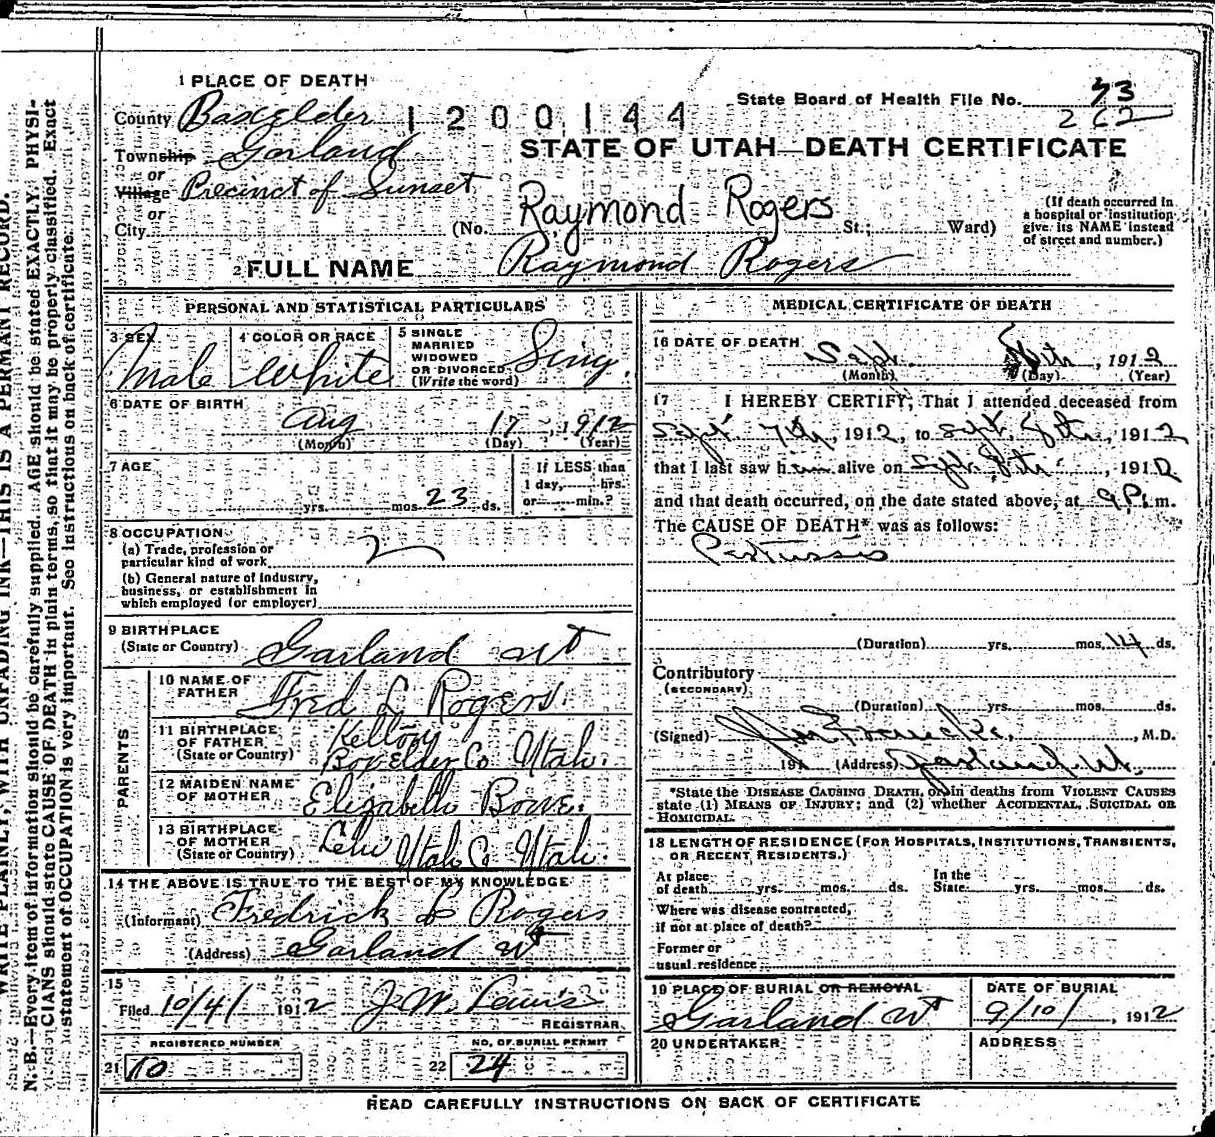 1 PLACE OF DEATH
County Boxelder 1200144
State Board of Health File No. 73
262
Township Garland
or
Village Precinct of Sunset
or
City
STATE OF UTAH—DEATH CERTIFICATE
Raymond Rogers
(No. St.; Ward)
(If death occurred in
a hospital or institution
give its NAME instead
of street and number.)
2 FULL NAME Raymond Rogers
PERSONAL AND STATISTICAL PARTICULARS
3 SEX Male
4 COLOR OR RACE White
5 SINGLE
MARRIED
WIDOWED
OR DIVORCED
(Write the word) Sing.
6 DATE OF BIRTH
Aug 17, 1912
(Month) (Day) (Year)
7 AGE
yrs. mos. 23 ds.
If LESS than
1 day, hrs.
or min.?
8 OCCUPATION
(a) Trade, profession or
particular kind of work
(b) General nature of Industry,
business, or establishment in
which employed (or employer)
9 BIRTHPLACE
(State or Country) Garland Ut
PARENTS
10 NAME OF
FATHER Fred L Rogers.
11 BIRTHPLACE
OF FATHER
(State or Country)
Boxelder Co Utah.
12 MAIDEN NAME
OF MOTHER Elizabeth
13 BIRTHPLACE
OF MOTHER
(State or Country) Lehi Utah Co Utah.
14 THE ABOVE IS TRUE TO THE BEST OF MY KNOWLEDGE
(Informant) Fredrick L Rogers
(Address) Garland Ut
15
Filed 10/4/ 1912 J.W. Lewis
REGISTRAR
REGISTERED NUMBER
21 10
NO. OF BURIAL PERMIT
22 24
MEDICAL CERTIFICATE OF DEATH
16 DATE OF DEATH
Sept. 8th, 1912
(Month) (Day) (Year)
17 I HEREBY CERTIFY, That I attended deceased from
Sept 7th, 1912, to Sept. 8th, 1912
that I last saw him alive on Sept. 8th, 1912
and that death occurred, on the date stated above, at 9 P. m.
The CAUSE OF DEATH* was as follows:
Pertussis
(Duration) yrs. mos. 14 ds.
Contributory
(SECONDARY)
(Duration) yrs. mos. ds.
(Signed) , M.D.
191 (Address) Garland Ut.
*State the DISEASE CAUSING DEATH, or in deaths from VIOLENT CAUSES
state (1) MEANS OF INJURY; and (2) whether ACCIDENTAL, SUICIDAL OR
HOMICIDAL.
18 LENGTH OF RESIDENCE (FOR HOSPITALS, INSTITUTIONS, TRANSIENTS,
OR RECENT RESIDENTS.)
At place
of death yrs. mos. ds.
In the
State yrs. mos. ds.
Where was disease contracted,
if not at place of death?
Former or
usual residence
19 PLACE OF BURIAL OR REMOVAL
Garland Ut
DATE OF BURIAL
9/10/, 1912
20 UNDERTAKER
ADDRESS
READ CAREFULLY INSTRUCTIONS ON BACK OF CERTIFICATE
WRITE PLAINLY, WITH UNFADING INK—THIS IS A PERMANT RECORD.
N. B.—Every item of information should be carefully supplied. AGE should be stated EXACTLY. PHYSI-
CIANS should state CAUSE OF DEATH in plain terms, so that it may be properly classified. Exact
statement of OCCUPATION is very important. See instructions on back of certificate.